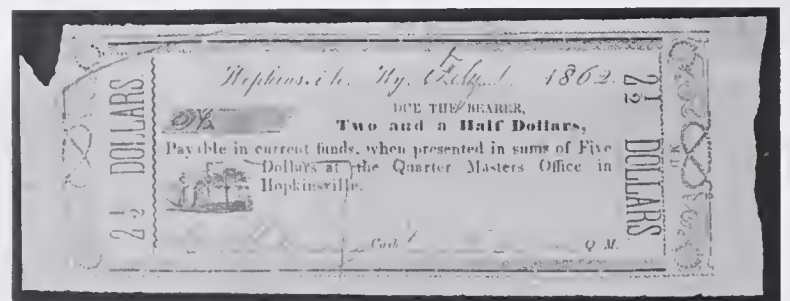 Hopkinsville, Ky. Feby 1 1862
DUE THE BEARER,
No.
Two and a Half Dollars,
Payable in current funds, when presented in sums of Five
Dollars at the Quarter Masters Office in
Hopkinsville.
Cash
Q. M.
2 1/2 DOLLARS
2 1/2 DOLLARS